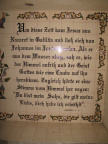 In dieser Zeit kam Jesus aus
Nazaret in Galiläa und ließ sich von
Johannes im Jordan taufen. Als er
aus dem Wasser stieg, sah er, wie
der Himmel aufriß und der Geist
Gottes wie eine Taube auf ihn
herabkam. Zugleich hörte er eine
Stimme vom Himmel her sagen:
"Du bist mein Sohn, dir gilt meine
Liebe, dich habe ich erwählt."